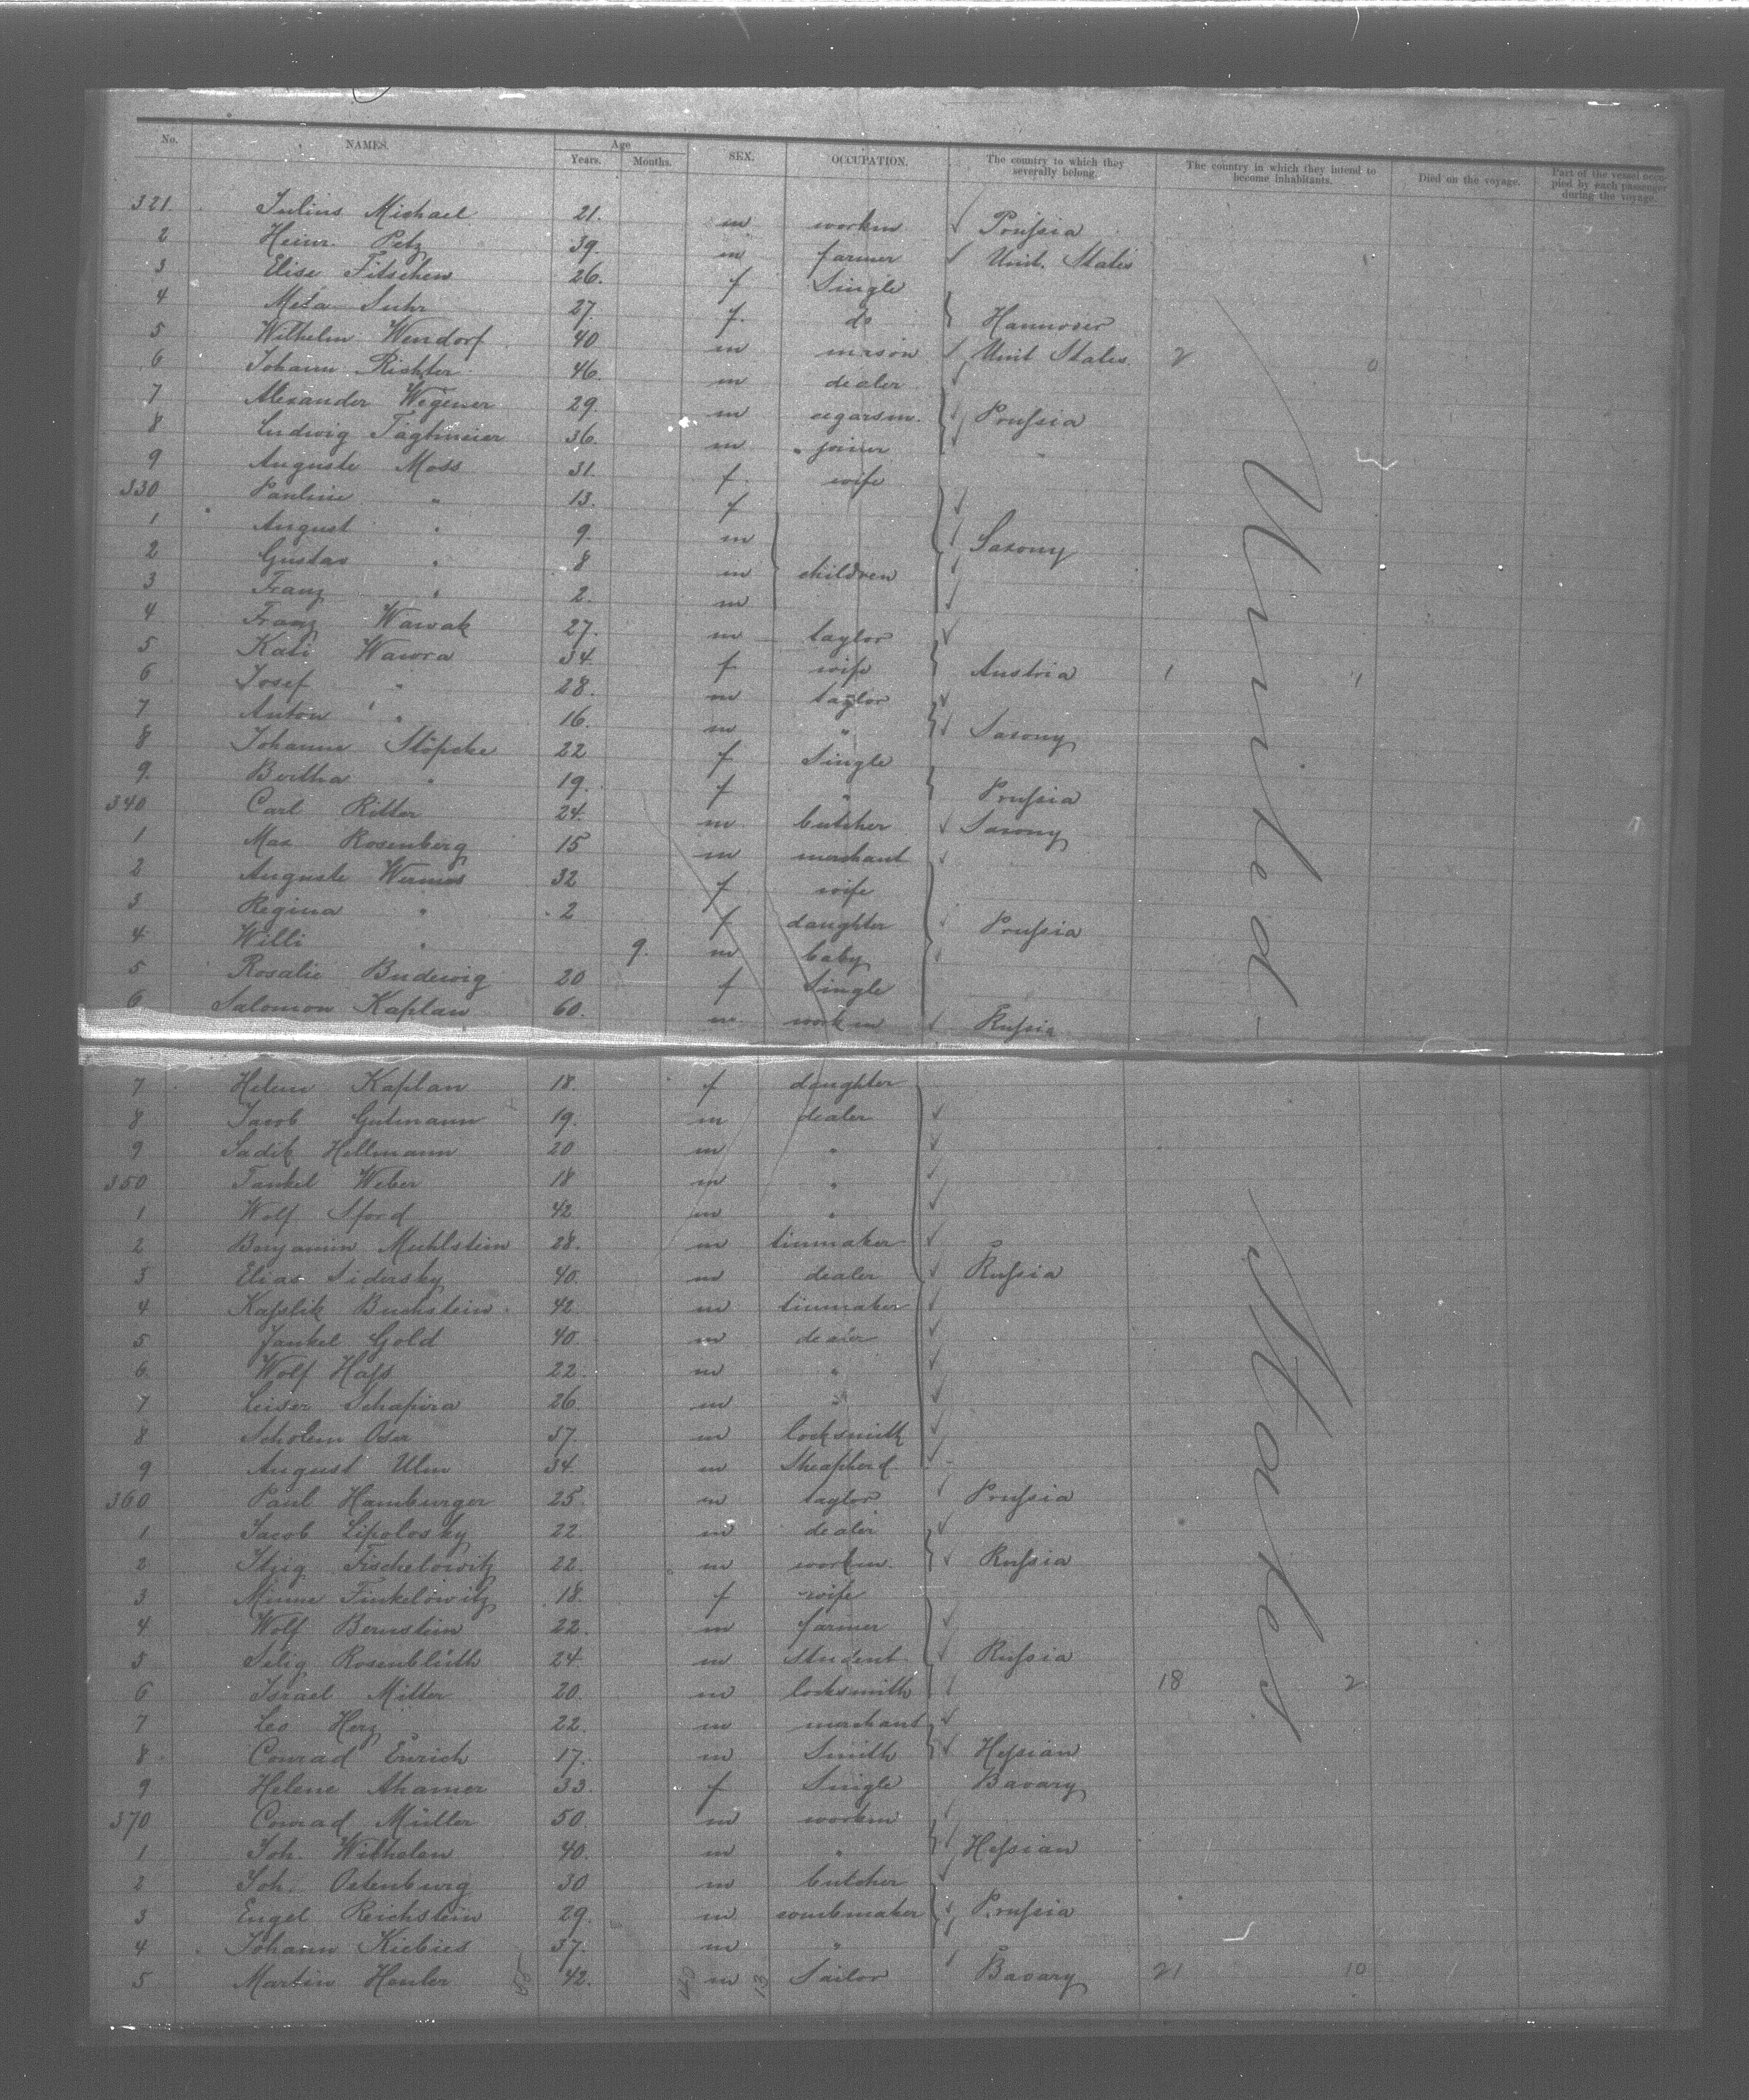 No. NAMES. Age Years. Months. SEX. OCCUPATION. The country to which they severally belong. The country in which they intend to become inhabitants. Died on the voyage. Part of the vessel occupied by each passenger during the voyage.
321. Julius Michael 21. m workm Prussia
2 Heinr. Petz 39. m farmer Unit. States
3 Elise Fitschen 26. f Single
4 Meta Suhr 27. f. do Hannover
5 Wilhelm Wendorf 40 m mason Unit States 2 0
6 Johann Richter 46. m dealer
7 Alexander Wegener 29. m cegarsm. Prussia
8 Ludwig Tägtmeier 36. m joiner
9 Auguste Moss 31. f. wife
330 Pauline " 13. f
1 August " 9. m Saxony
2 Gustav " 8 m children
3 Franz " 2. m
4 Franz Wawak 27. m taylor
5 Kati Wawra 34. f wife Austria 1 1
6 Josef " 28. m taylor
7 Anton " 16. m " Saxony
8 Johanne Stöpcke 22 f Single
9. Bertha " 19. f " Prussia
340 Carl Ritter 24. m butcher Saxony
1 Max Rosenberg 15 m merchant
2 Auguste 32 f wife
3 Regina " 2 f daughter Prussia
4 Willi " 9. m baby
5 Rosalie Budewig 20 f Single
6 Salomon Kaplan 60. m workm Russia
7 Helene Kaplan 18. f daughter
8 Jacob Gutmann 19. m dealer
9 Sadik Hellmann 20 m "
350 Tankel Weber 18 m "
1 Wolf Sford 42 m "
2 Benjamin Muhlstein 28. m tinmaker
3 Elias Sidersky 40. m dealer Russia
4 Kasslik Buchstein. 42. m tinmaker
5 Jankel Gold 40. m dealer
6 Wolf Hass 22. m "
7 Leiser Schapira 26. m "
8 Scholem Oser 37. m locksmith
9 August Ulm 34. m Sheapherd
360 Paul Hamburger 25. m taylor Prussia
1 Jacob Lipolosky 22. m dealer
2 Itzig Fischelowitz 22. m workm. Russia
3 Minna Finkelowitz 18. f wife
4 Wolf Bernstein 22. m farmer
5 Selig Rosenblüth 24. m Student Russia
6 Israel Mitter 20. m locksmith 18 2
7 Leo Herz 22. m merchant
8 Conrad Emrich 17. m Smith Hessian
9 Helene Ahamer 33. f Single Bavary
370 Conrad Müller 50. m workm
1 Joh. Wilhelm 40. m " Hessian
2 Joh. Oetenburg 30 m butcher
3 Engel Reichstein 29. m combmaker Prussia
4 Johann Kiebies 37. m "
5 Martin Henler 42. m Sailor Bavary 21 10
United States